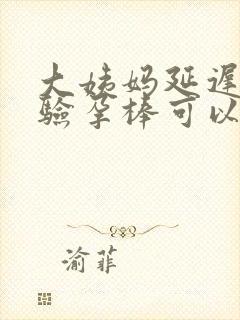 大姨妈延遲
驗孕棒可以
渝菲